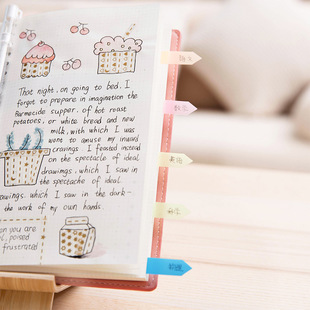 That night, on going to bed, I
forgot to prepare in imagination the
Barmecide supper, of hot roast
potatoes, or white bread and new
milk, with which I was
wont to amuse my inward
cravings. I feasted instead
on the spectacle of ideal
drawings, which I saw in
the spectacle of ideal
drawings, which I saw in the dark-
the work of my own hands.
you are
poised
frustrated